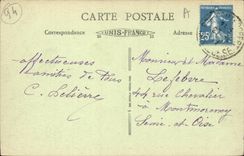 94
A
CARTE POSTALE
Correspondance
UNIS-FRANCE
25
affectueuses
amitiés de tous
C. Lelièvre
Monsieur et Madame
Lefebvre
44 rue Chevalier
à Montmorency
Seine et Oise